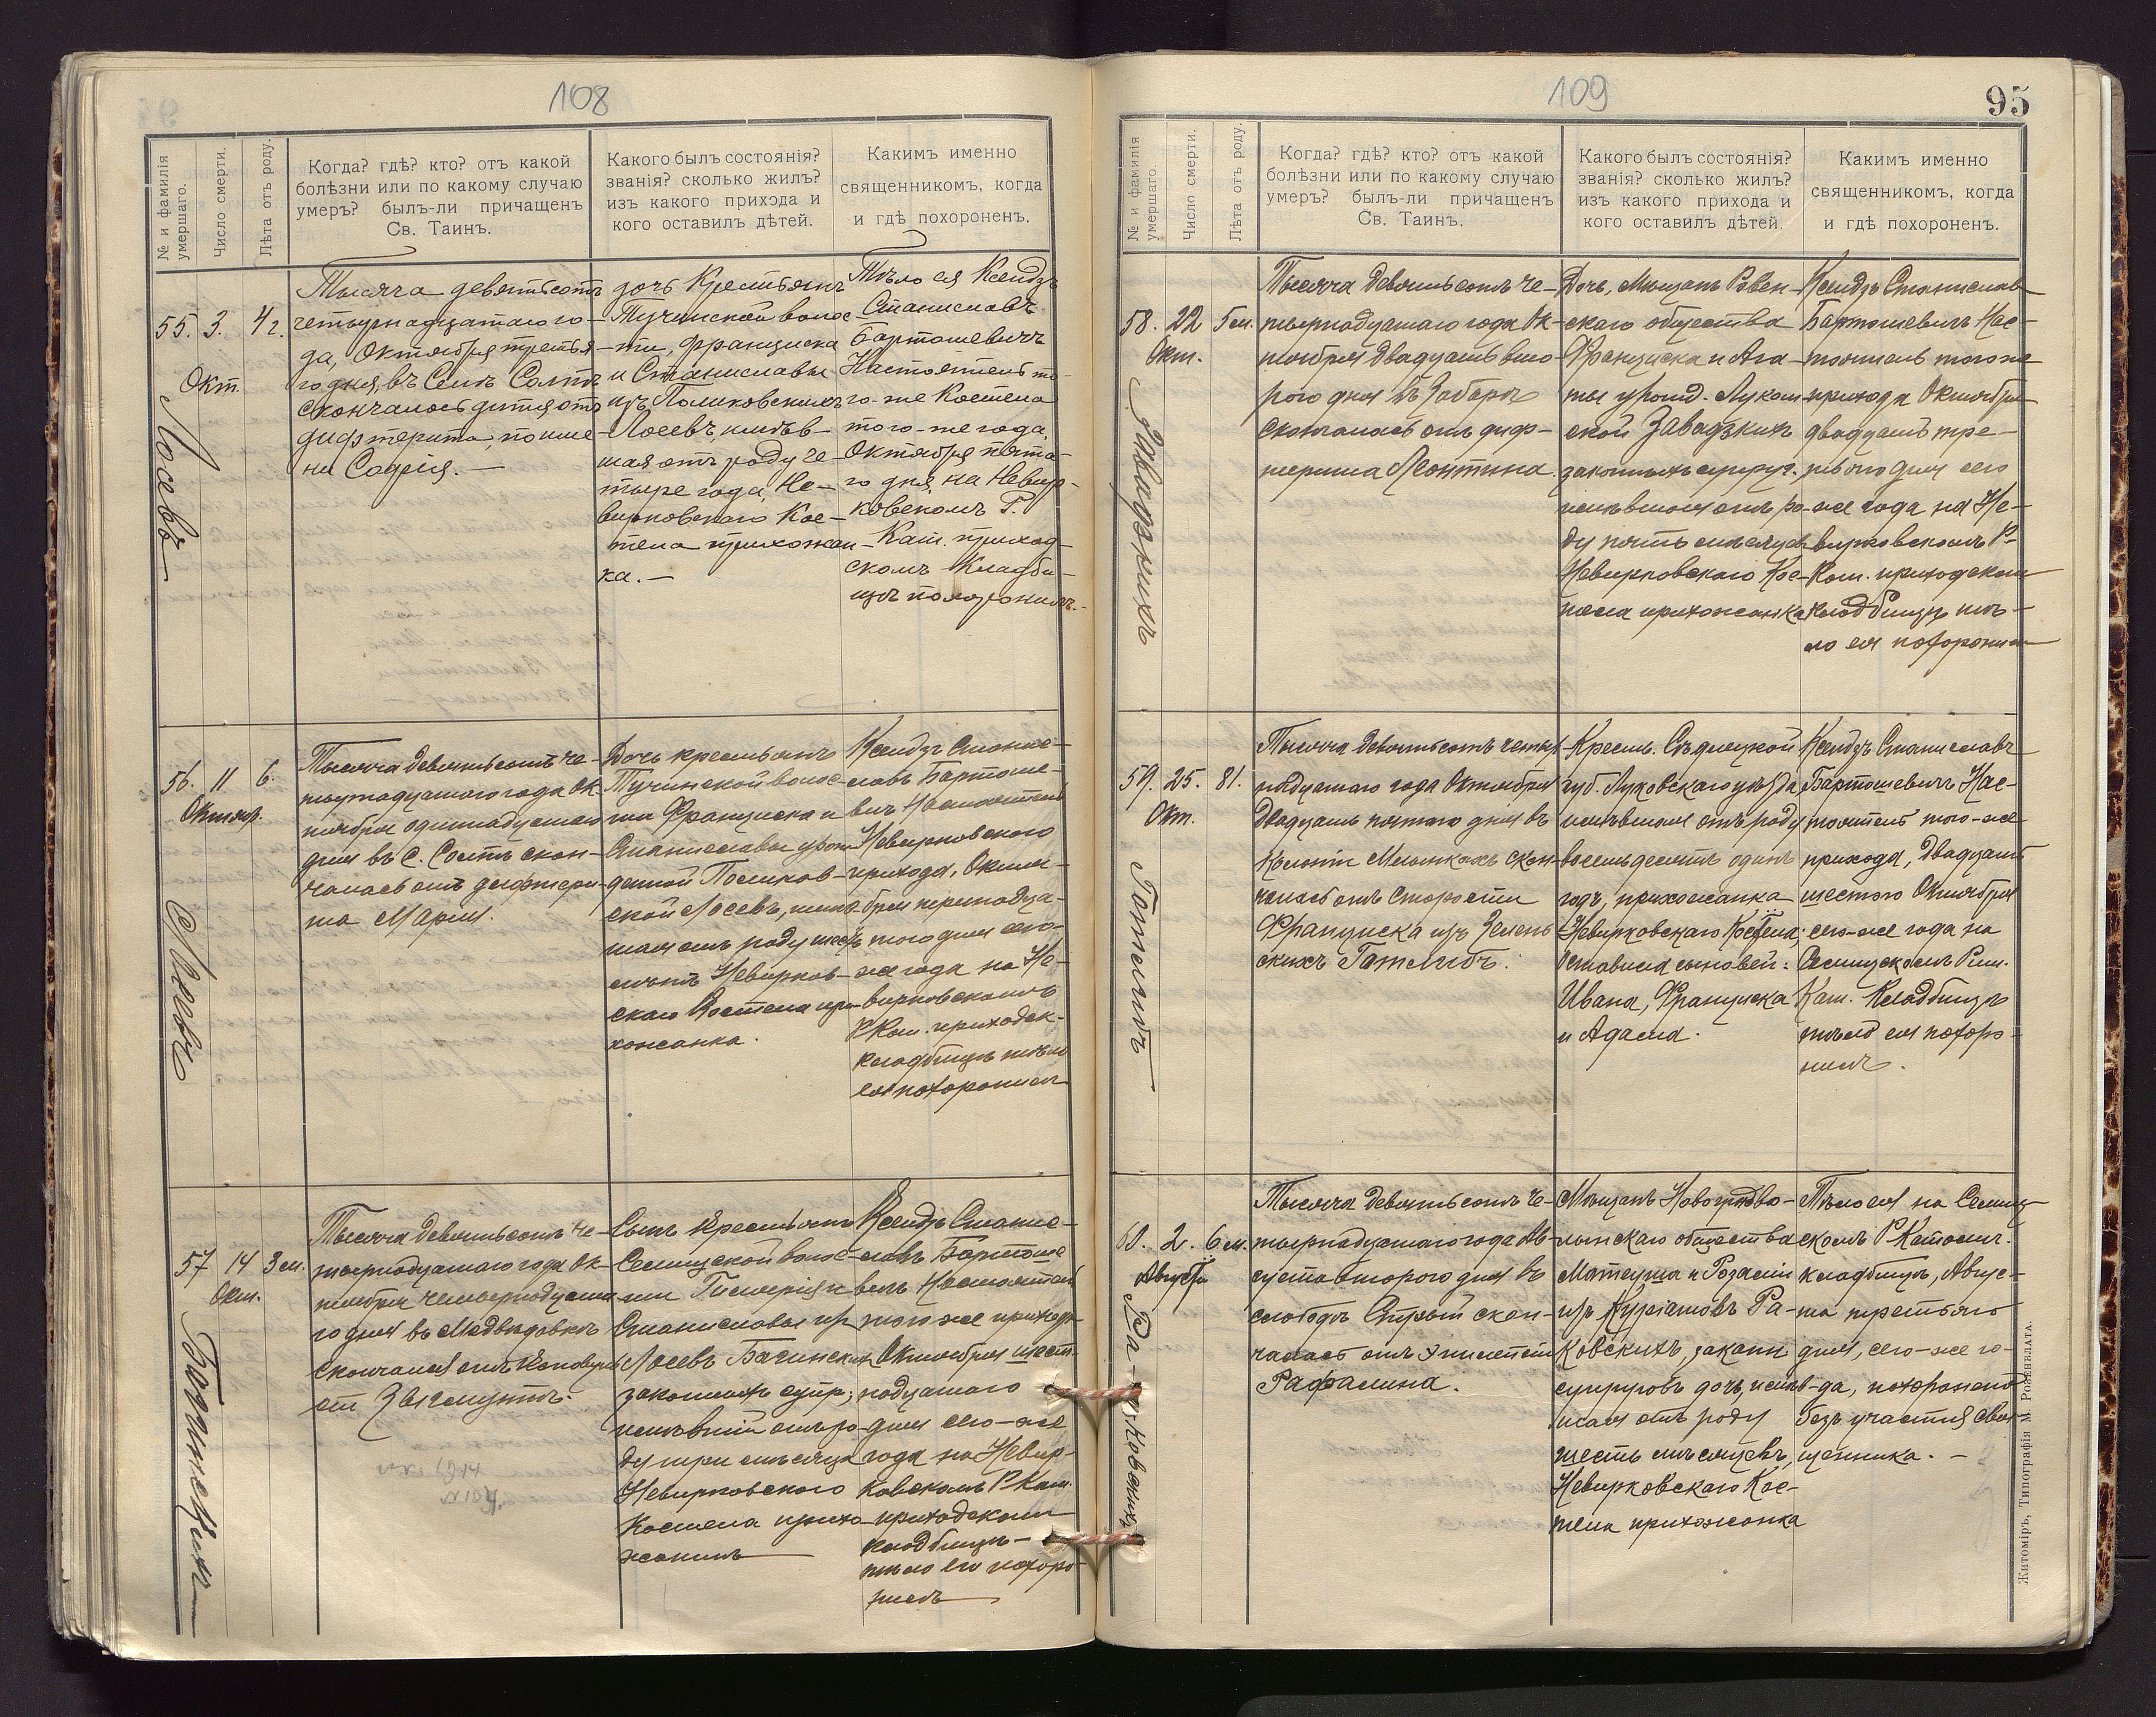 108
№ и фамилія умершаго.
Число смерти.
Лѣта отъ роду.
Когда? гдѣ? кто? отъ какой
болѣзни или по какому случаю
умеръ? былъ-ли причащенъ
Св. Таинъ.
Какого былъ состоянія?
званія? сколько жилъ?
изъ какого прихода и
кого оставилъ дѣтей.
Какимъ именно
священникомъ, когда
и гдѣ похороненъ.
55. 3. 4 г.
Окт.
Лосевъ
Тысяча девятьсотъ
четырнадцатаго го-
да, Октября третья-
го дня, въ Селѣ Солтѣ
скончалось дитя отъ
дифтерита, по име-
ни Софія. —
дочь Крестьянъ
Тучинской волос-
ти, Франциска
и Станиславы
изъ Поликовскихъ
Лосевъ, имѣв-
шая отъ роду че-
тыре года, Не-
вирковскаго Кос-
тела прихожан-
ка. —
Тѣло ея Ксендзъ
Станиславъ
Бартошевичъ
Настоятель то-
го-же Костела
того-же года,
Октября пята-
го дня, на Невир-
ковскомъ Р.
Кат. приход-
скомъ Кладби-
щѣ похоронилъ. -
56. 11 6.
Октябр.
Лосевъ
Тысяча девятьсотъ че-
тырнадцатаго года Ок-
тября одиннадцатаго
дня въ с. Солтѣ скон-
чалась отъ дифтери-
та Марія.
Дочь крестьянъ
Тучинской волос-
ти Франциска и
Станиславы урож-
денной Поликов-
ской Лосевъ, имѣв-
шая отъ роду шесть
лѣтъ Невирков-
скаго Костела при-
хожанка.
Ксендзъ Станис-
лавъ Бартоше-
вичъ Настоятель
Невирковскаго
прихода, Октя-
бря тринадца-
таго дня сего-
же года на Не-
вирковскомъ
Р. Кат. приходск.
кладбищѣ тѣло
ея похоронилъ
57 14 3 м.
Окт.
Тысяча девятьсотъ че-
тырнадцатаго года Ок-
тября четырнадцата-
го дня въ Медвѣдовкѣ
скончался отъ
Сынъ крестьянъ
Селищской волос-
ти
Станиславы изъ
Лосевъ
законныхъ супр.,
имѣвшій отъ ро-
ду три мѣсяца
Невирковскаго
Костела прихо-
жанинъ
Ксендзъ Станис-
лавъ Бартоше-
вичъ Настоятель
того же прихода
Октября шест-
надцатаго
дня сего-же
года на Невир-
ковскомъ Р. Кат.
приходскомъ
кладбищѣ
тѣло его похоро-
нилъ
109
95
№ и фамилія умершаго.
Число смерти.
Лѣта отъ роду.
Когда? гдѣ? кто? отъ какой
болѣзни или по какому случаю
умеръ? былъ-ли причащенъ
Св. Таинъ.
Какого былъ состоянія?
званія? сколько жилъ?
изъ какого прихода и
кого оставилъ дѣтей.
Какимъ именно
священникомъ, когда
и гдѣ похороненъ.
58. 22 5 м.
Окт.
Завадзкихъ
Тысяча девятьсотъ че-
тырнадцатаго года Ок-
тября двадцать вто-
рого дня въ
скончалась отъ диф-
терита Леонтина.
Дочь, мѣщанъ Ровен-
скаго общества
Франциска и Ага-
ты урожд.
Завадзкихъ
законныхъ супруг.
имѣвшая отъ ро-
ду пять мѣсяцевъ
Невирковскаго Кос-
тела прихожанка
Ксендзъ Станиславъ
Бартошевичъ Нас-
тоятель того же
прихода Октября
двадцать тре-
тьяго дня сего
же года на Не-
вирковскомъ Р.
Кат. приходском
кладбищѣ тѣ-
ло ея похоронилъ
59. 25. 81.
Окт.
Готлибъ
Тысяча девятьсотъ четыр-
надцатаго года Октября
двадцать пятаго дня въ
колоніи скон-
чалась отъ старости
Франциска изъ Зелен-
скихъ Готлибъ.
Крест. Сѣдлецкой
губ. Луковскаго уѣзда
имѣвшая отъ роду
восемьдесятъ одинъ
годъ, прихожанка
Невирковскаго Костела;
оставила сыновей:
Ивана, Франциска
и Адама.
Ксендзъ Станиславъ
Бартошевичъ Нас-
тоятель того-же
прихода, двадцать
шестого Октября
сего-же года на
Селищскомъ Рим.
Кат. Кладбищѣ
тѣло ея похоро-
нилъ.
60. 2. 6 м.
Августа
Ра-ковскихъ
Тысяча девятьсотъ че-
тырнадцатаго года Ав-
густа второго дня въ
слободѣ скон-
чалась отъ эпилепсіи
Рафалина.
Мѣщанъ Новоградво-
лынскаго общества
Матеуша и Розаліи
изъ Ра-
ковскихъ, законн.
супруговъ дочь, имѣв-
шая отъ роду
шесть мѣсяцевъ,
Невирковскаго Кос-
тела прихожанка
Тѣло ея на Селищ-
скомъ Р. Католич.
кладбищѣ, Авгус-
та третьяго
дня, сего-же го-
да, похоронено
безъ участія свя-
щенника. —
Житоміръ, Типографія М. Розенблата.